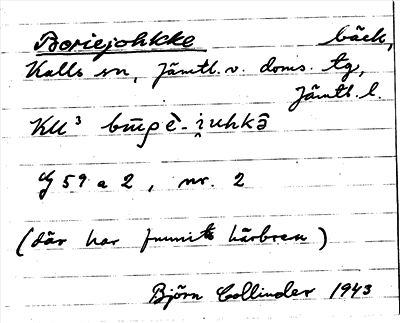 Boriejohkke bäck,
Kalls sn, Jämtl. v. doms. tg,
Jämtl. l.
Kll³ būrₑ̀-i̯uhkə̑
G 59 a 2, nr. 2
(där har funnits härbren)
Björn Collinder 1943